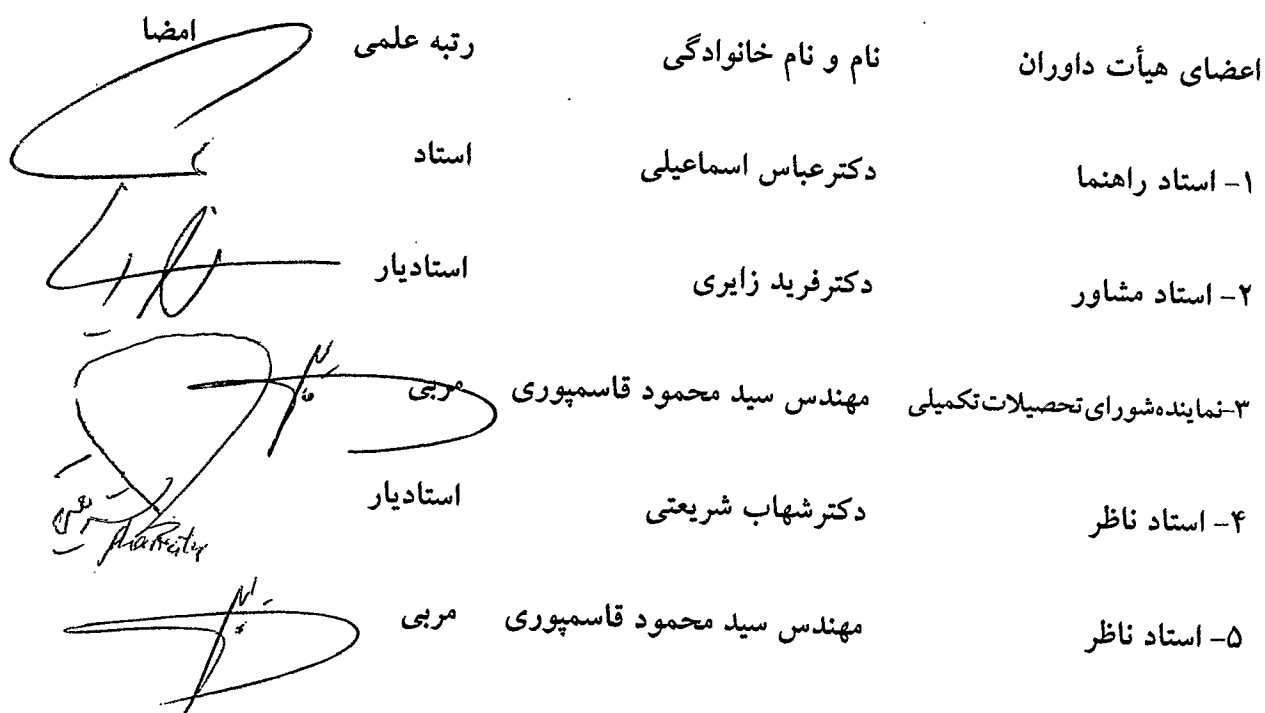 اعضای هیأت داوران نام و نام خانوادگی رتبه علمی امضا
۱- استاد راهنما دکترعباس اسماعیلی استاد
۲- استاد مشاور دکترفرید زایری استادیار
۳-نماینده‌شورای‌تحصیلات‌تکمیلی مهندس سید محمود قاسمپوری مربی
۴- استاد ناظر دکترشهاب شریعتی استادیار
۵- استاد ناظر مهندس سید محمود قاسمپوری مربی